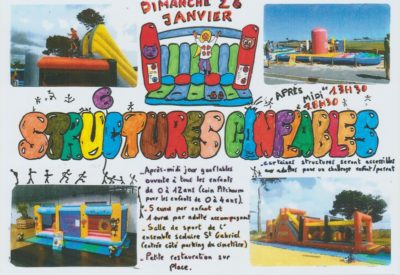 DIMANCHE 26
JANVIER
APRÈS
MIDI
13H30
18H30
6
STRUCTURES GONFLABLES
- Après-midi jeux gonflables
ouverte à tous les enfants
de 0 à 12 ans (coin Pitchoun
pour les enfants de 0 à 4 ans).
- 5 euro par enfant et
1 euro par adulte accompagnant
- Salle de sport de l'
ensemble scolaire St Gabriel
(entrée côté parking du cimetière)
- Petite restauration sur
place.
. certaines structures seront accessibles
aux adultes pour un challenge enfant/parent